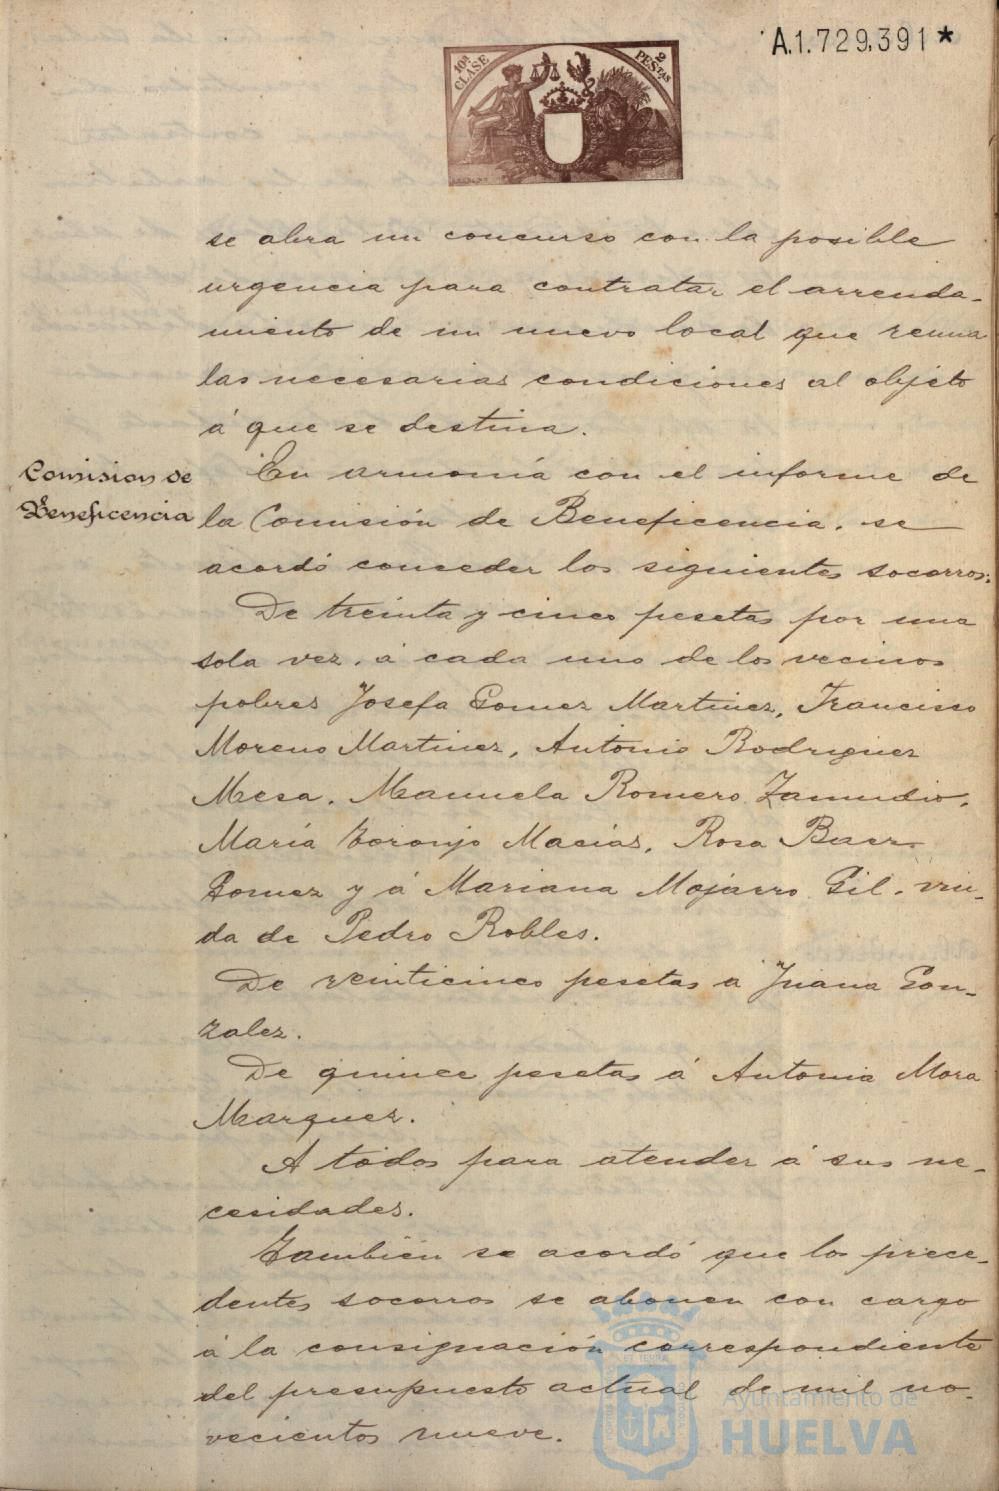 A.1.729,391*
10ª CLASE
2 PESTAS
se abra un concurso con la posible
urgencia para contratar el arrenda-
miento de un nuevo local que reuna
las necesarias condiciones al objeto
á que se destina.
Comision de
Beneficencia
En armonía con el informe de
la Comisión de Beneficencia, se
acordó conceder los siguientes socorros:
De treinta y cinco pesetas por una
sola vez, á cada uno de los vecinos
pobres Josefa Gomez Martinez, Francisco
Moreno Martinez, Antonio Rodriguez
Mesa, Manuela Romero Zamudio,
María Toronjo Macías, Rosa Baez
Gomez y á Mariana Mojarro Gil, viu-
da de Pedro Robles.
De veinticinco pesetas á Juana Gon-
zalez.
De quince pesetas á Antonia Mora
Marquez.
A todos para atender á sus ne-
cesidades.
También se acordó que los prece-
dentes socorros se abonen con cargo
á la consignación correspondiente
del presupuesto actual de mil no-
vecientos nueve.
Ayuntamiento de
HUELVA